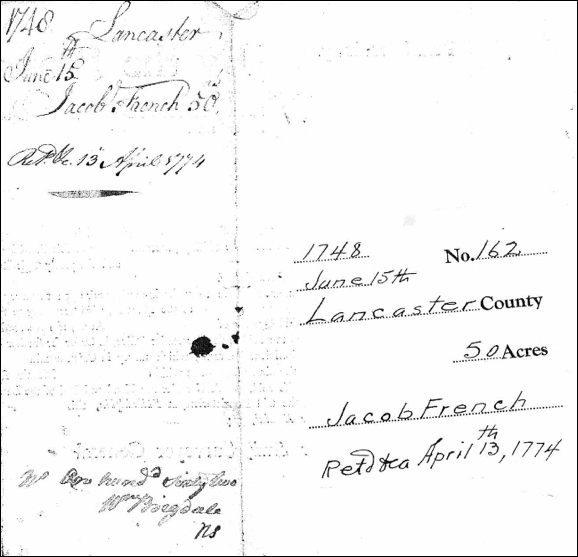 1748 Lancaster
June 15th
Jacob French 50 as
Retd. &c. 13 April 1774
No One hundd Sixty two
Wm
Ns
1748 No. 162
June 15th
Lancaster County
50 Acres
Jacob French
Retd &ca April 13th, 1774